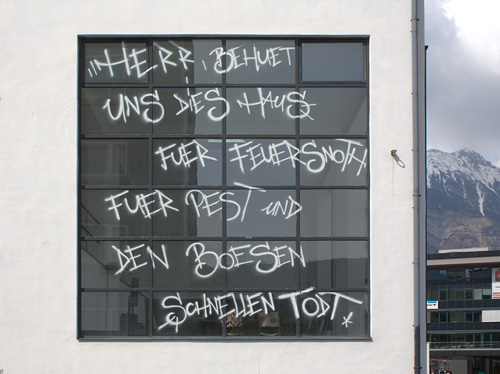 „HERR, BEHUET
UNS DIES HAUS
FUER FEUERSNOTH,
FUER PEST UND
DEN BOESEN
SCHNELLEN TODT.*